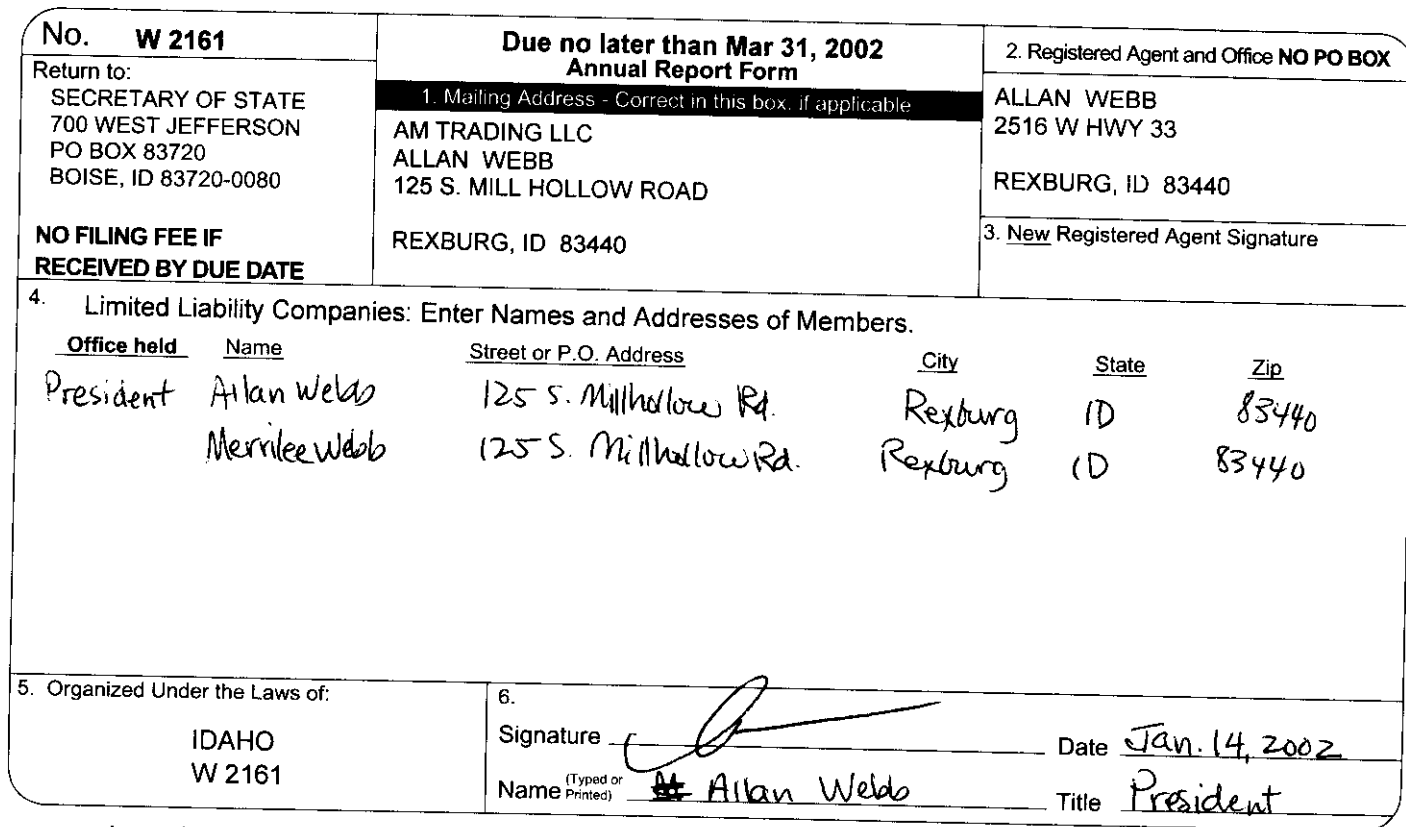 No. W 2161
Return to:
SECRETARY OF STATE
700 WEST JEFFERSON
PO BOX 83720
BOISE, ID 83720-0080
NO FILING FEE IF
RECEIVED BY DUE DATE
Due no later than Mar 31, 2002
Annual Report Form
1. Mailing Address - Correct in this box, if applicable
AM TRADING LLC
ALLAN WEBB
125 S. MILL HOLLOW ROAD
REXBURG, ID 83440
2. Registered Agent and Office NO PO BOX
ALLAN WEBB
2516 W HWY 33
REXBURG, ID 83440
3. New Registered Agent Signature
4. Limited Liability Companies: Enter Names and Addresses of Members.
Office held Name Street or P.O. Address City State Zip
President Allan Webb 125 S. Millhollow Rd. Rexburg ID 83440
Merrilee Webb 125 S. Millhollow Rd. Rexburg ID 83440
5. Organized Under the Laws of:
IDAHO
W 2161
6.
Signature Date Jan. 14, 2002
Name (Typed or Printed) Allan Webb Title President